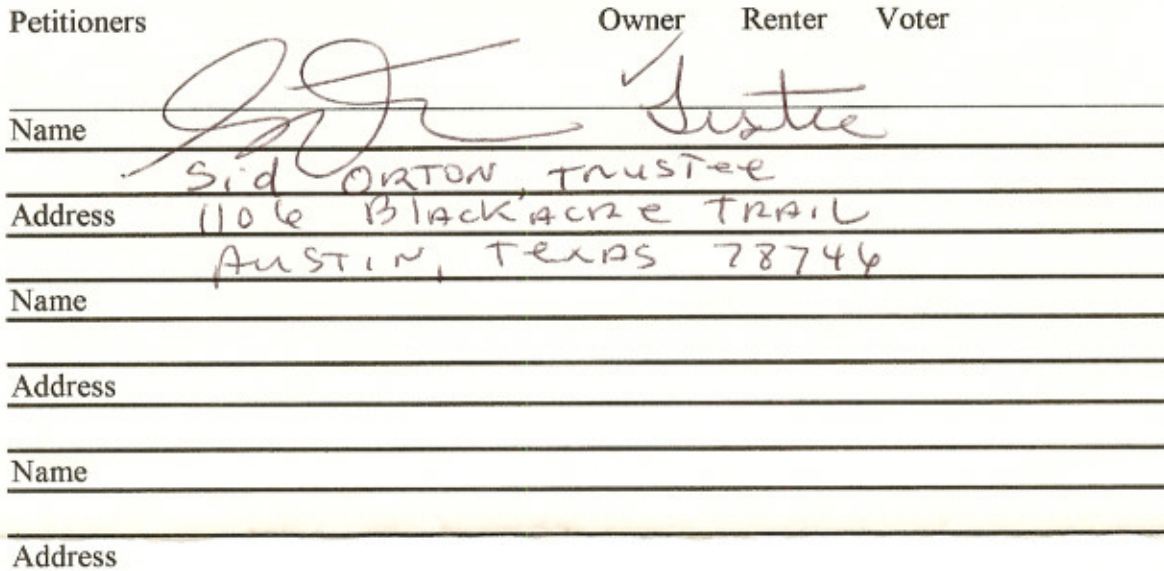 Petitioners Owner Renter Voter
✓ Trustee
Name
Sid ORTON, TRUSTEE
Address 1106 BlACKACRE TRAIL
AUSTIN, TEXAS 78746
Name
Address
Name
Address